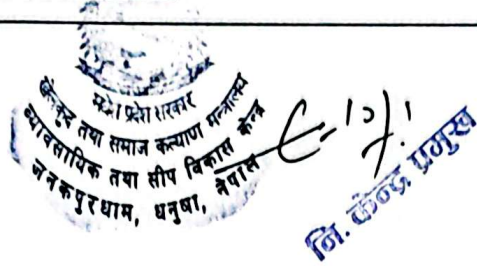 मधेश प्रदेश सरकार
खेलकुद तथा समाज कल्याण मन्त्रालय
व्यावसायिक तथा सीप विकास केन्द्र
जनकपुरधाम, धनुषा, नेपाल
नि. केन्द्र प्रमुख